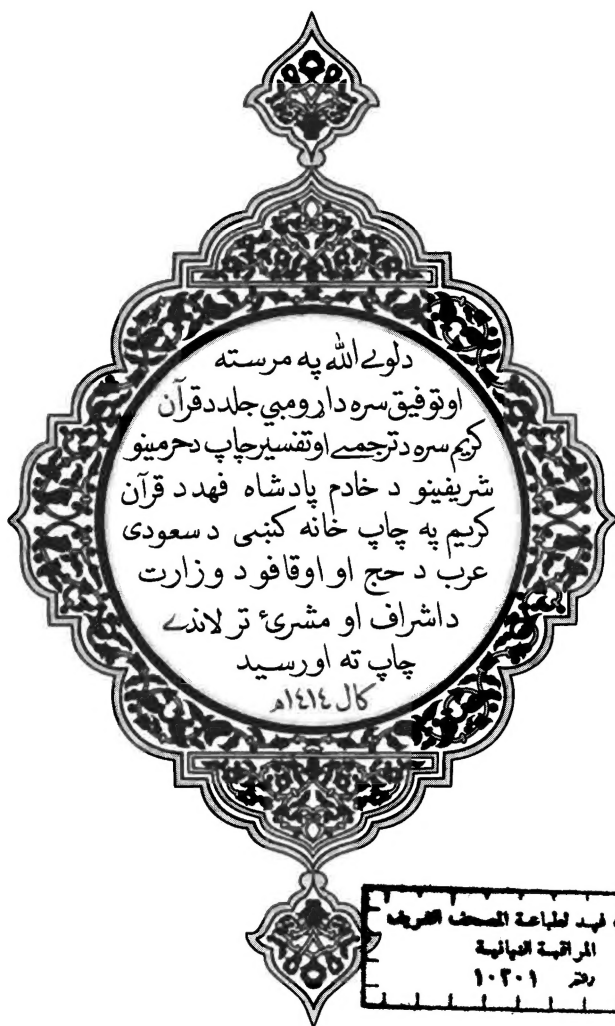 دلوے الله په مرسته
اوتوفیق سره دا رومبي جلد دقرآن
کریم سره دترجمے اوتفسیر چاپ دحرمینو
شریفینو د خادم پادشاه فهد د قرآن
کریم په چاپ خانه کښی د سعودی
عرب د حج او اوقافو د وزارت
داشراف او مشرئ تر لاندے
چاپ ته اورسید
کال ١٤١٤ﻫ
فهد لطباعة المصحف الشريف
المراقبة النهائية
دفتر ١٠٢٠١